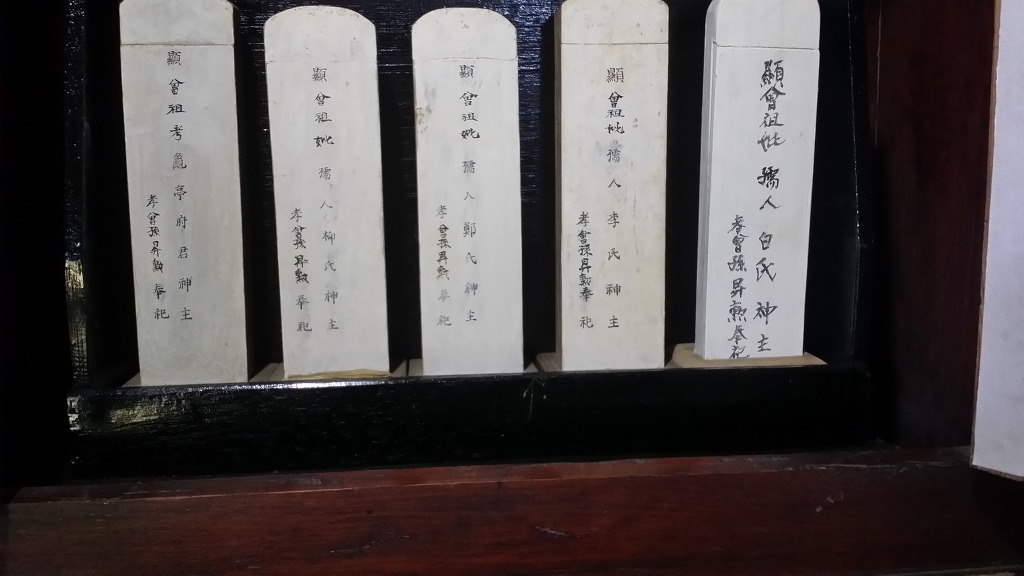 顯曾祖考亭府君神主
孝曾孫昇勳奉祀
顯曾祖妣孺人柳氏神主
孝曾孫昇勳奉祀
顯曾祖妣孺人鄭氏神主
孝曾孫昇勳奉祀
顯曾祖妣孺人李氏神主
孝曾孫昇勳奉祀
顯曾祖妣孺人白氏神主
孝曾孫昇勳奉祀